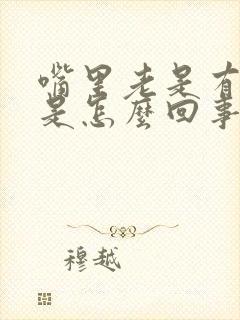 嘴里老是有
是怎麼回事
穆越